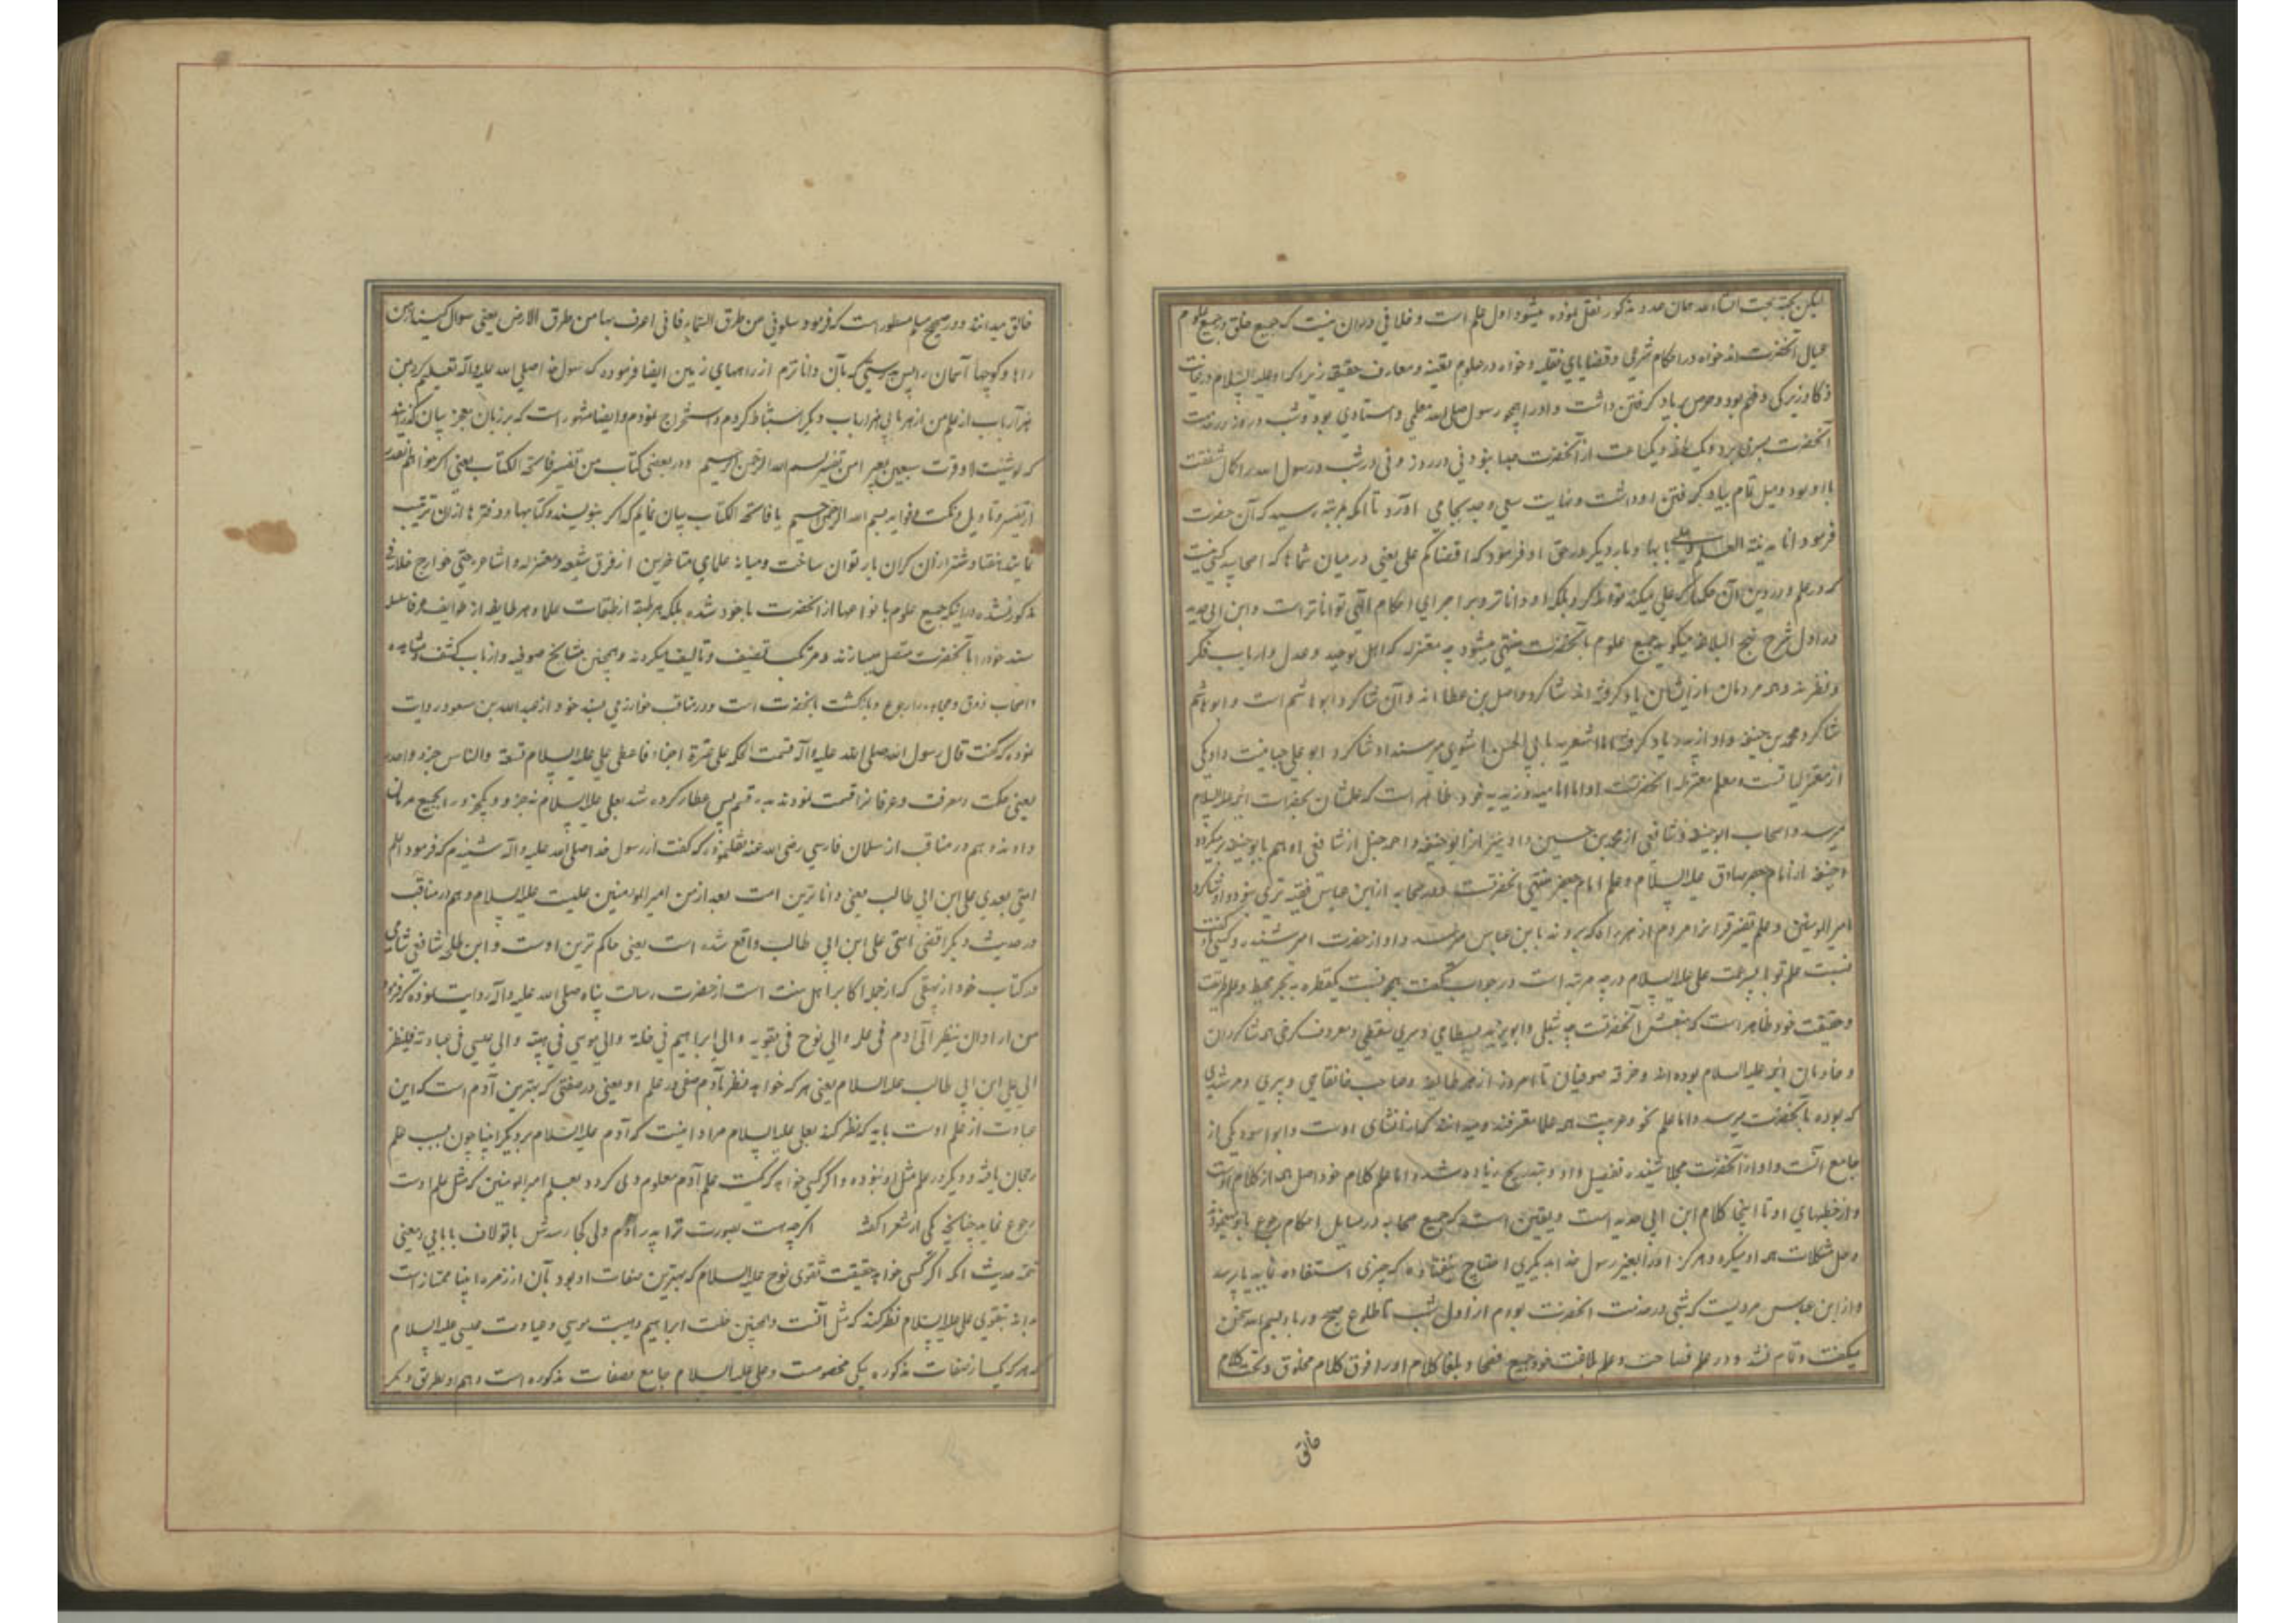 لیکن بجهت انشاء الله همان صد و مذکور نقل نموده میشود اول علم است و خلافی در آن نیست که جمیع خلق در جمیع علوم
عیال آنحضرت اند خواه در احکام شرعی و قضایای فقلیه و خواه در علوم یقینه و معارف حقیقه زیرا که او علیه السلام در غایت
ذکا و زیرکی و فهم بود و حرص بر یاد گرفتن داشت و او را همچو رسول صلی الله معلمی و استادی بود و شب و روز در خدمت
آنحضرت بسر می برد و یک لحظه و یکساعت از آنحضرت جدا نبود نی در روز و نی در شب و رسول الله را کمال شفقت
با او بود و میل تمام بیاد گرفتن او داشت و غایت سعی و جد بجا می آورد تا آنکه بمرتبه رسید که آن حضرت
فرمود انا مدینة العلم و علی بابها و بار دیگر در حق او فرمود که اقضاکم علی یعنی در میان شما که اصحابید کسی نیست
که در علم و در دین آن حکمها که علی میکند تواند کرد بلکه او داناتر و بر اجرای احکام الهی تواناتر است و ابن ابی حدید
در اول شرح نهج البلاغه میگوید جمیع علوم بآنحضرت منتهی میشود چه معتزله که اهل توحید و عدل و ارباب فکر
و نظرند و همه مردمان از ایشان یاد گرفته اند شاگرد واصل بن عطا اند و آن شاگرد ابو هاشم است و ابو هاشم
شاگرد محمد بن حنفیه و او از پدر یاد گرفته اما اشعریه بابی الحسن اشعری میرسند او شاگرد ابو علی جبائیست و او یکی
از معتزلیانست و معلم معتزله آنحضرتست اما امامیه و زیدیه خود ظاهر است که علمشان بحضرات ائمه علیه السلام
میرسد و اصحاب ابوحنیفه و شافعی از محمد بن حسین و او نیز از ابوحنیفه و احمد حنبل از شافعی او هم بابوحنیفه میگردد
ابوحنیفه از امام جعفر صادق علیه السلام و علم امام جعفر منتهی بآنحضرتست و در صحابه از ابن عباس فقیه تری نبود و او شاگرد
امیر المومنین و علم تفسیر قرآنرا مردم از هر راه که بردند بابن عباس میرسد و او از حضرت امیر شنیده و کسی از او گفت
نسبت علم تو با پسر عمت علی علیه السلام در چه مرتبه است در جواب گفت همچو نسبت یکقطره به بحر محیط و علم طریقت
و حقیقت خود ظاهر است که منبعش آنحضرتست چه شبلی و ابویزید بسطامی و سری سقطی و معروف کرخی همه شاگردان
و خادمان ائمه علیه السلام بوده اند و خرقه صوفیان تا امروز از هر طایفه و صاحب خانقاهی و پیری و مرشدی
که بوده بآنحضرت میرسد و اما علم نحو و عربیت همه علما معترفند و میدانند که از انشای اوست و ابو اسود یکی از
جامع آنست و او از آنحضرت مجملا شنیده تفصیل داد و بتدریج زیاده شد و اما علم کلام خود اصل همه از کلام اوست
و از خطبهای او تا اینجا کلام ابن ابی حدید است و یقین است که جمیع صحابه در مسایل احکام رجوع باو میکردند
و حل مشکلات همه او میکرد و هرگز او را بغیر رسول خدا بدیگری احتیاج نیفتاده که چیزی استفاده نماید یا پرسد
و از ابن عباس مرویست که شبی در خدمت آنحضرت بودم از اول شب تا طلوع صبح در باء بسم الله سخن
میگفت و تمام نشد و در علم فصاحت و علم بلاغت خود جمیع فصحا و بلغا کلام او را فوق کلام مخلوق و تحت کلام
خالق
خالق میدانند و در صحیح مسلم مسطور است که فرمود سلونی من طرق السماء فانی اعرف بها من طرق الارض یعنی سوال کنید از من
راهها و کوچها آسمان را پس بدرستی که بآن داناترم از راههای زمین ایضا فرموده که رسول خدا صلی الله علیه و آله تعلیم کرد بمن
هزار باب از علم من از هر بابی هزار باب دیگر استنباط کردم و استخراج نمودم و ایضا مشهور است که بر زبان معجز بیان گذرانید
که لو شئت لاوقرت سبعین بعیرا من تفسیر بسم الله الرحمن الرحیم و در بعضی کتاب من تفسیر فاتحة الکتاب یعنی اگر خواهم بعد
از تفسیر و تاویل و نکت و فواید بسم الله الرحمن الرحیم یا فاتحة الکتاب بیان نمایم که اگر بنویسند و کتابها و دفترها از آن ترتیب
نمایند هفتاد شتر از آن گران بار توان ساخت و میانه علمای متاخرین از فرق شیعه و معتزله و اشاعره حتی خوارج خلافی
مذکور نشده در اینکه جمیع علوم بانواعها از آنحضرت ماخوذ شده بلکه هر طبقه از طبقات علما و هر طایفه از طوایف عرفا سلسله
سند خود را بآنحضرت متصل میسازند و مرتکب تصنیف و تالیف میگردند و همچنین مشایخ صوفیه و ارباب کشف و مشاهده
و اصحاب ذوق و مجاهده را رجوع و بازگشت بآنحضرت است و در مناقب خوارزمی بسند خود از عبد الله بن مسعود روایت
نموده که گفت قال رسول الله صلی الله علیه و آله قسمت الحکمة علی عشرة اجزاء فاعطی علی علیه السلام تسعة و الناس جزء واحد
یعنی حکمت و معرفت و عرفانرا قسمت نمودند به ده قسم پس عطا کرده شد بعلی علیه السلام نه جزو و یکجزو را بجمیع مردمان
دادند و هم در مناقب از سلمان فارسی رضی الله عنه نقلنموده که گفت از رسول خدا صلی الله علیه و آله شنیدم که فرمود اعلم
امتی بعدی علی ابن ابی طالب یعنی داناترین امت بعد از من امیر المومنین علیست علیه السلام و هم در مناقب
در حدیث دیگر اقضی امتی علی ابن ابی طالب واقع شده است یعنی حاکم ترین اوست و ابن طلحه شافعی شامی
در کتاب خود از بیهقی که از جمله اکابر اهل سنت است از حضرت رسالت پناه صلی الله علیه و آله روایت نموده که فرمود
من اراد ان ینظر الی آدم فی علمه و الی نوح فی تقویه و الی ابراهیم فی خلته و الی موسی فی هیبته و الی عیسی فی عبادته فلینظر
الی علی ابن ابی طالب علیه السلام یعنی هر که خواهد نظر بآدم صفی در علم او یعنی در صفتی که بهترین آدم است که این
عبادت از علم اوست باید که نظر کند بعلی علیه السلام مراد اینست که آدم علیه السلام بر دیگر انبیا چون بسبب علم
رجحان یافته و دیگر در علم مثل او نبوده و اگر کسی خواهد که کمیت علم آدم معلوم وی گردد بعلم امیر المومنین که مثل علم اوست
رجوع نماید چنانچه یکی از شعرا گفته اگر چه هست بصورت ترا پدر آدم ولی کجا رسدش با تو لاف بابایی و معنی
تتمه حدیث آنکه اگر کسی خواهد حقیقت تقوی نوح علیه السلام که بهترین صفات او بود و بآن از زمره انبیا ممتاز است
بداند بتقوی علی علیه السلام نظر کند که مثل آنست و همچنین خلت ابراهیم و هیبت موسی و عبادت عیسی علیه السلام
که هر که یکی از صفات مذکوره یکی مخصوصست و علی علیه السلام جامع صفات مذکوره است و هم او بطریق دیگر